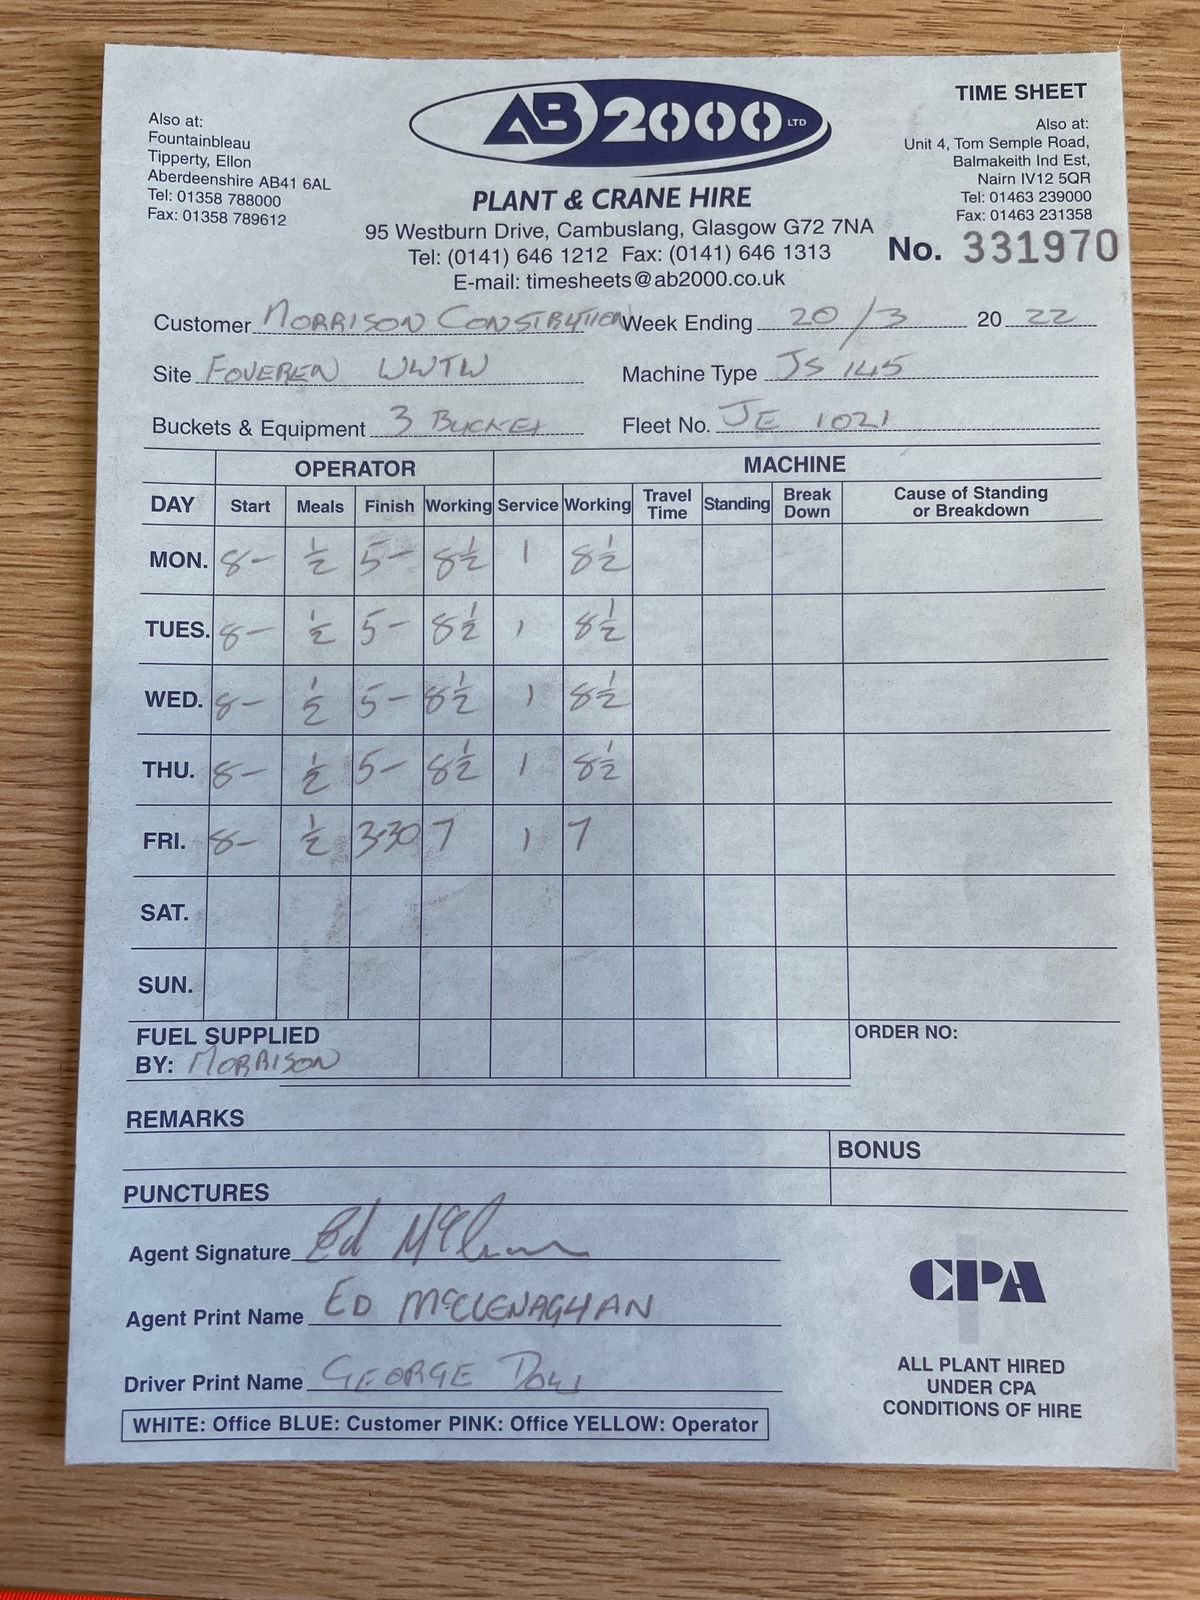 Also at:
Fountainbleau
Tipperty, Ellon
Aberdeenshire AB41 6AL
Tel: 01358 788000
Fax: 01358 789612
AB 2000 LTD
PLANT & CRANE HIRE
95 Westburn Drive, Cambuslang, Glasgow G72 7NA
Tel: (0141) 646 1212 Fax: (0141) 646 1313
E-mail: timesheets@ab2000.co.uk
TIME SHEET
Also at:
Unit 4, Tom Semple Road,
Balmakeith Ind Est,
Nairn IV12 5QR
Tel: 01463 239000
Fax: 01463 231358
No. 331970
Customer MORRISON CONSTRUTION Week Ending 20/3 20 22
Site FOVEREN WWTW Machine Type JS 145
Buckets & Equipment 3 BUCKET Fleet No. JE 1021
OPERATOR MACHINE
DAY Start Meals Finish Working Service Working Travel Time Standing Break Down Cause of Standing or Breakdown
MON. 8- ½ 5- 8½ 1 8½
TUES. 8- ½ 5- 8½ 1 8½
WED. 8- ½ 5- 8½ 1 8½
THU. 8- ½ 5- 8½ 1 8½
FRI. 8- ½ 3·30 7 1 7
SAT.
SUN.
FUEL SUPPLIED
BY: MORRISON
ORDER NO:
REMARKS
BONUS
PUNCTURES
Agent Signature Ed
Agent Print Name ED McCLENAGHAN
Driver Print Name GEORGE DOW
WHITE: Office BLUE: Customer PINK: Office YELLOW: Operator
CPA
ALL PLANT HIRED
UNDER CPA
CONDITIONS OF HIRE